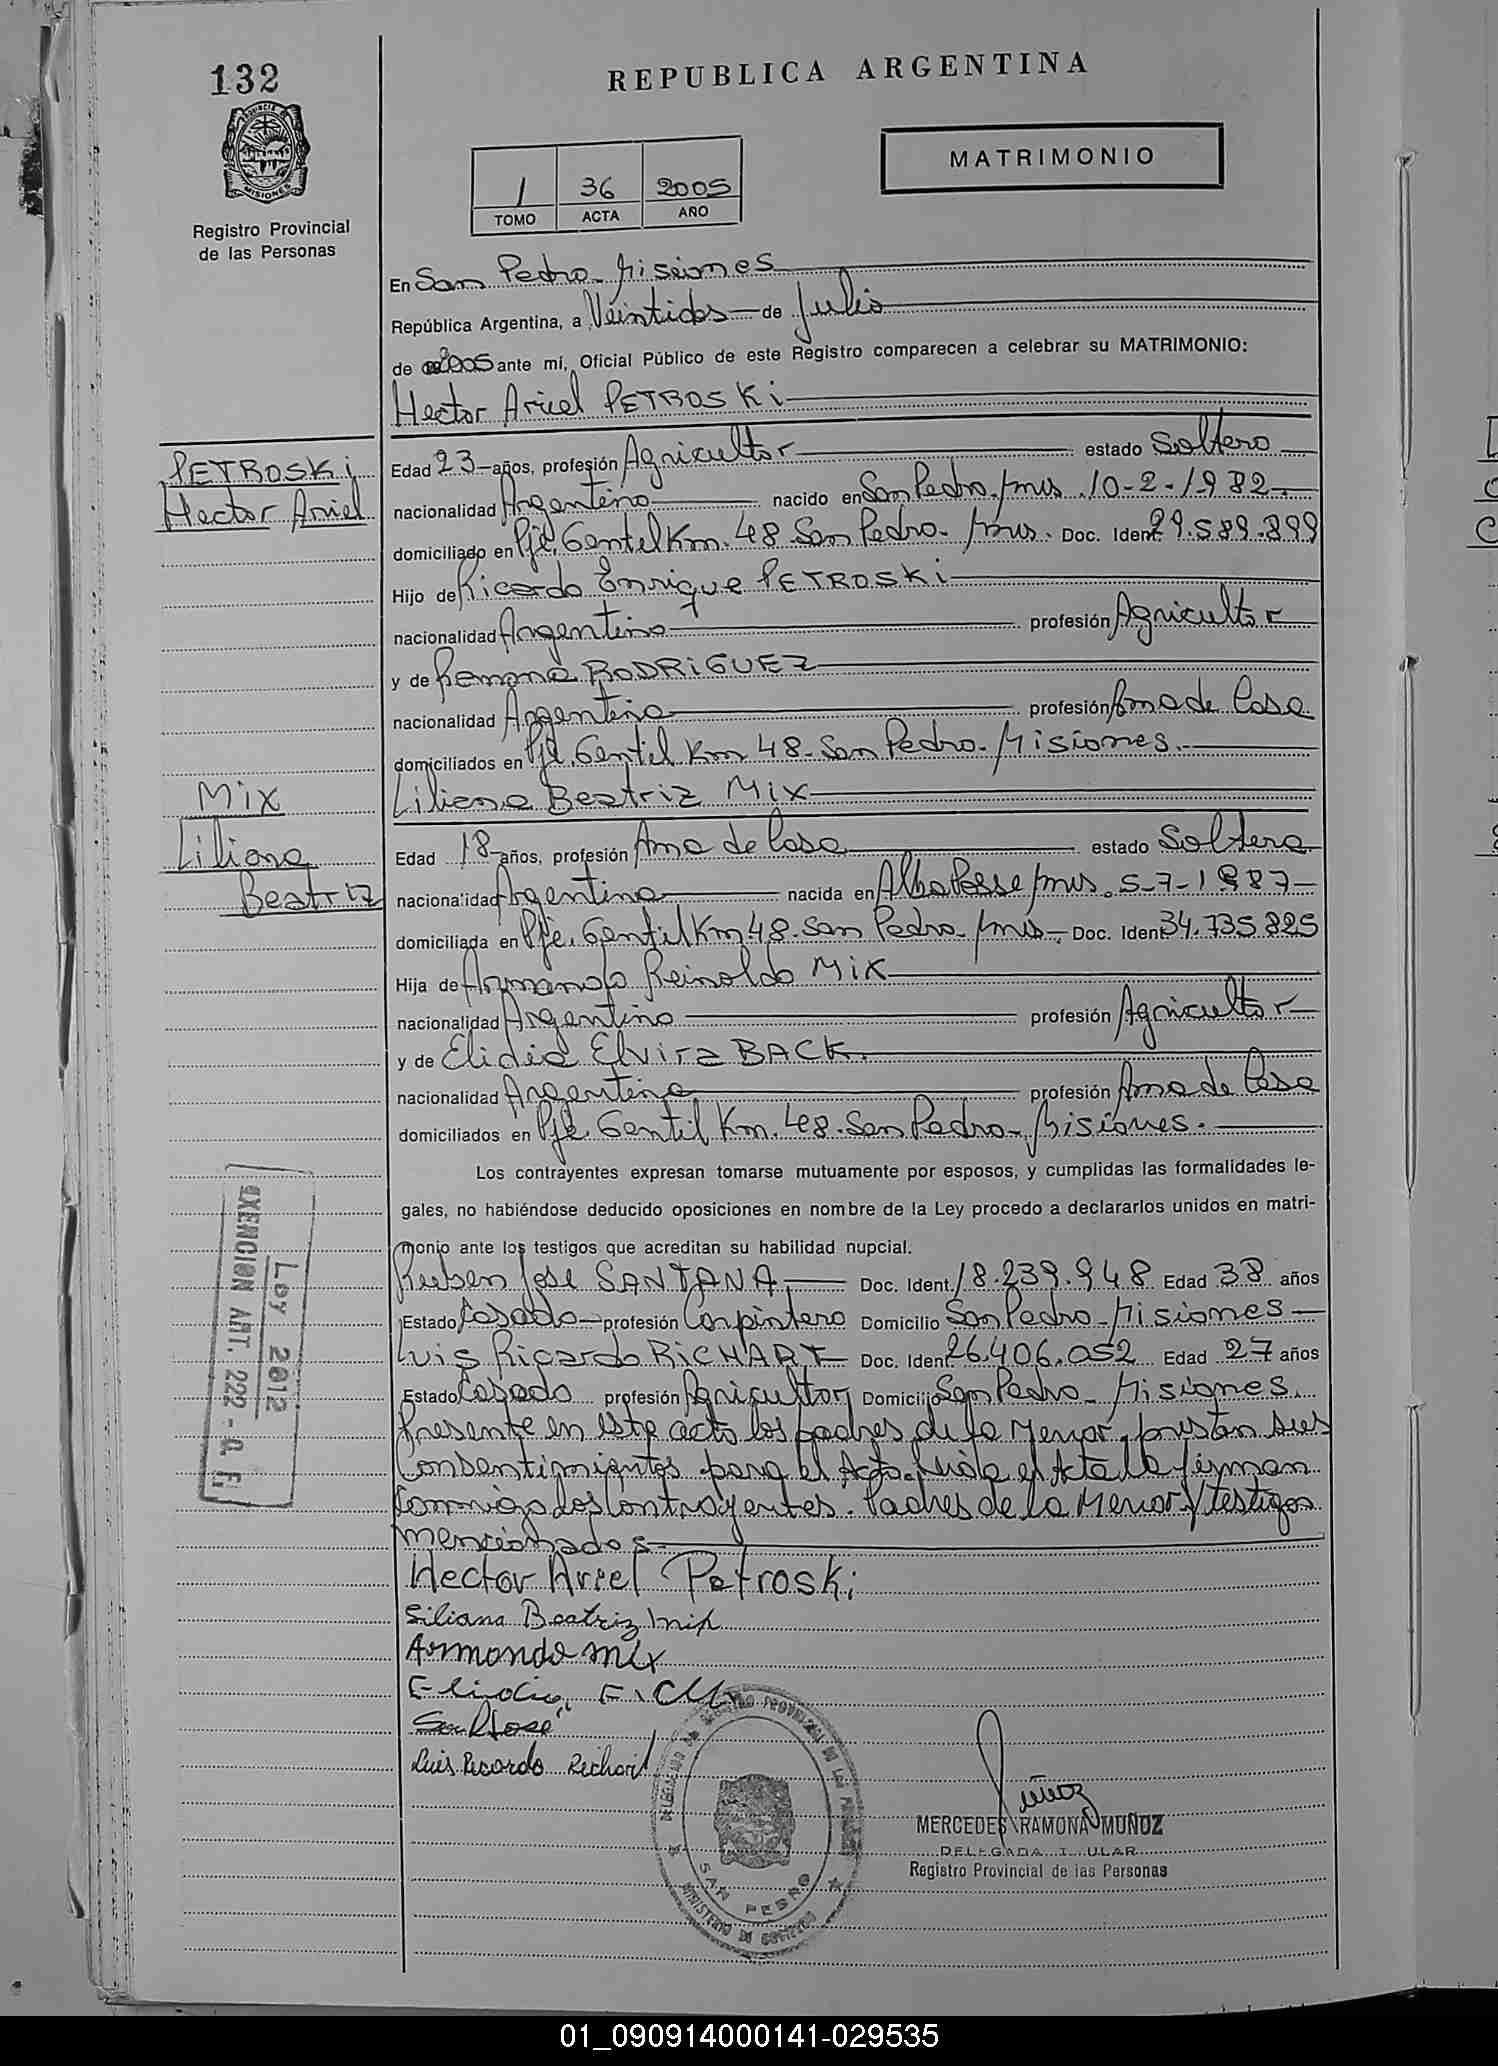 132
REPUBLICA ARGENTINA
PROVINCIA
MISIONES
Registro Provincial
de las Personas
MATRIMONIO
1 36 2005
TOMO ACTA AÑO
En San Pedro - Misiones
República Argentina, a Veintidos de Julio
de 2005 ante mí, Oficial Público de este Registro comparecen a celebrar su MATRIMONIO:
Hector Ariel PETROSKi
PETROSKi
Hector Ariel
Edad 23 años, profesión Agricultor estado Soltero
nacionalidad Argentino nacido en San Pedro - Mns. 10-2-1982
domiciliado en Pje. Gentil Km. 48 San Pedro - Mns. Doc. Ident. 29.589.899
Hijo de Ricardo Enrique PETROSKi
nacionalidad Argentino profesión Agricultor
y de Ramona RODRiGUEZ
nacionalidad Argentina profesión Ama de Casa
domiciliados en Pje. Gentil Km 48 - San Pedro - Misiones.
Mix
Liliana
Beatriz
Liliana Beatriz Mix
Edad 18 años, profesión Ama de Casa estado Soltera
nacionalidad Argentina nacida en Alba Posse Mns. 5-7-1987
domiciliada en Pje. Gentil Km 48 - San Pedro - Mns - Doc. Ident. 34.735.825
Hija de Armando Reinoldo Mix
nacionalidad Argentino profesión Agricultor
y de Elidia Elvira BACK.
nacionalidad Argentina profesión Ama de Casa
domiciliados en Pje. Gentil Km. 48 - San Pedro - Misiones.
Los contrayentes expresan tomarse mutuamente por esposos, y cumplidas las formalidades le-
gales, no habiéndose deducido oposiciones en nombre de la Ley procedo a declararlos unidos en matri-
monio ante los testigos que acreditan su habilidad nupcial.
Ley 2012
EXENCION ART. 222 - a F.
Ruben Jose SANTANA Doc. Ident. 18.239.948 Edad 38 años
Estado Casado profesión Carpintero Domicilio San Pedro - Misiones
Luis Ricardo RICHART Doc. Ident. 26.406.052 Edad 27 años
Estado Casado profesión Agricultor Domicilio San Pedro - Misiones.
Presente en este acto los padres de la Menor, prestan sus
Consentimientos para el Acto. Leida el Acta la firman
Conmigo los Contrayentes. Padres de la Menor y testigos
mencionados
Hector Ariel Petroski
Liliana Beatriz Mix
Armando mix
Elidia E.
Jose
Luis Ricardo Richart
REGISTRO PROVINCIAL DE LAS PERSONAS
SAN PEDRO
MINISTERIO DE GOBIERNO
Muñoz
MERCEDES RAMONA MUÑOZ
DELEGADA TITULAR
Registro Provincial de las Personas
01_090914000141-029535